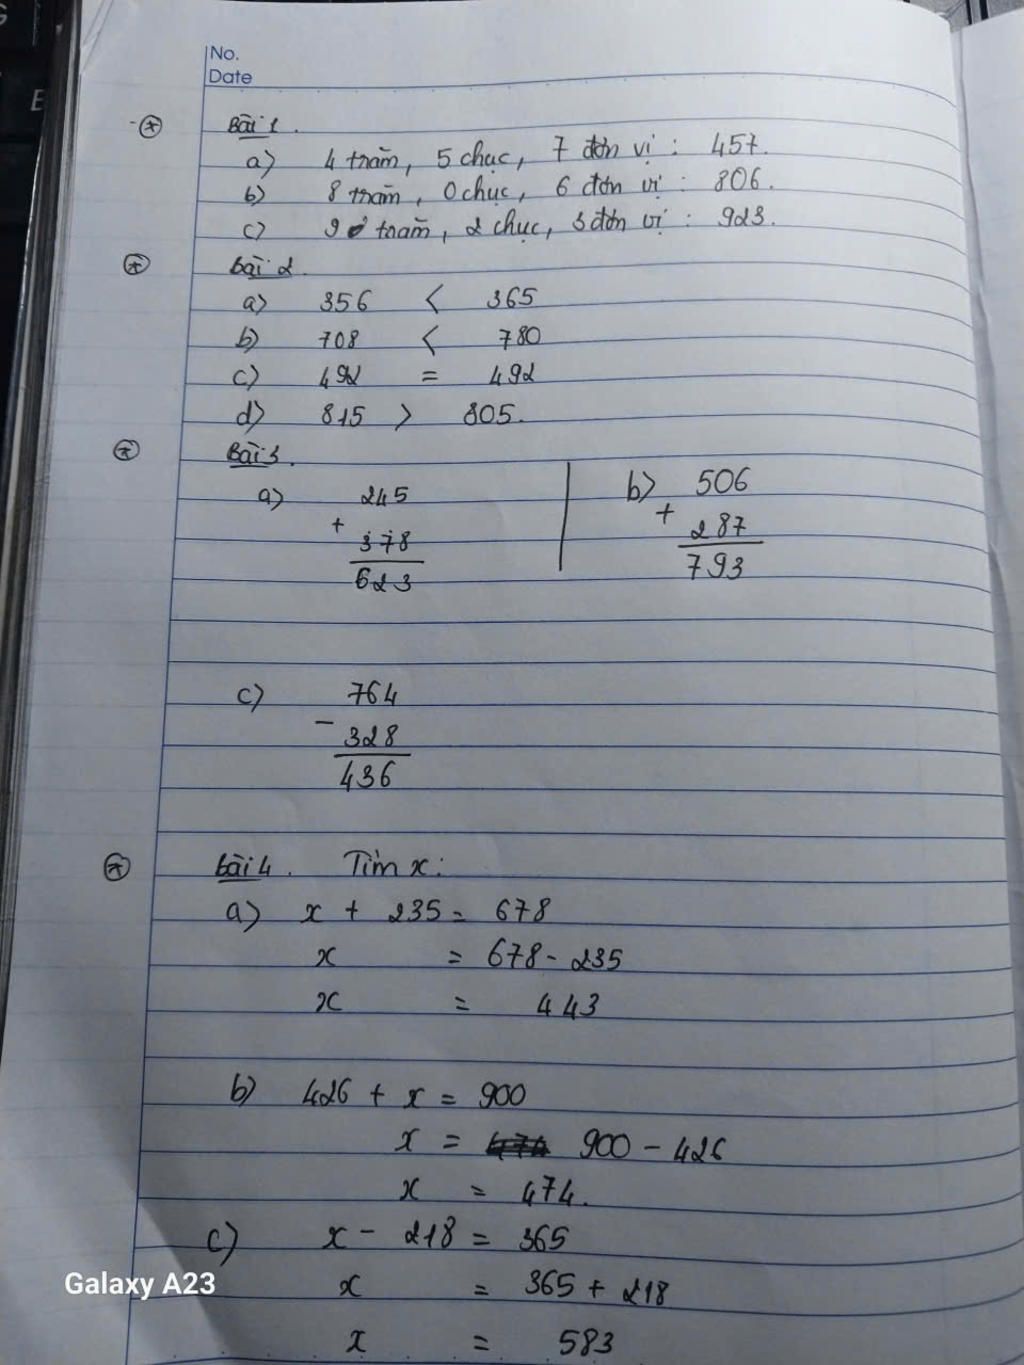 No.
Date
Bài 1.
a) 4 trăm, 5 chục, 7 đơn vị : 457.
b) 8 trăm, 0 chục, 6 đơn vị : 806.
c) 9 trăm, 2 chục, 3 đơn vị : 923.
bài 2.
a) 356 < 365
b) 708 < 780
c) 492 = 492
d) 815 > 805.
Bài 3.
a) 245
+
378
623
b) 506
+
287
793
c) 764
-
328
436
bài 4. Tìm x:
a) x + 235 = 678
x = 678 - 235
x = 443
b) 426 + x = 900
x = 900 - 426
x = 474.
c) x - 218 = 365
x = 365 + 218
x = 583
Galaxy A23